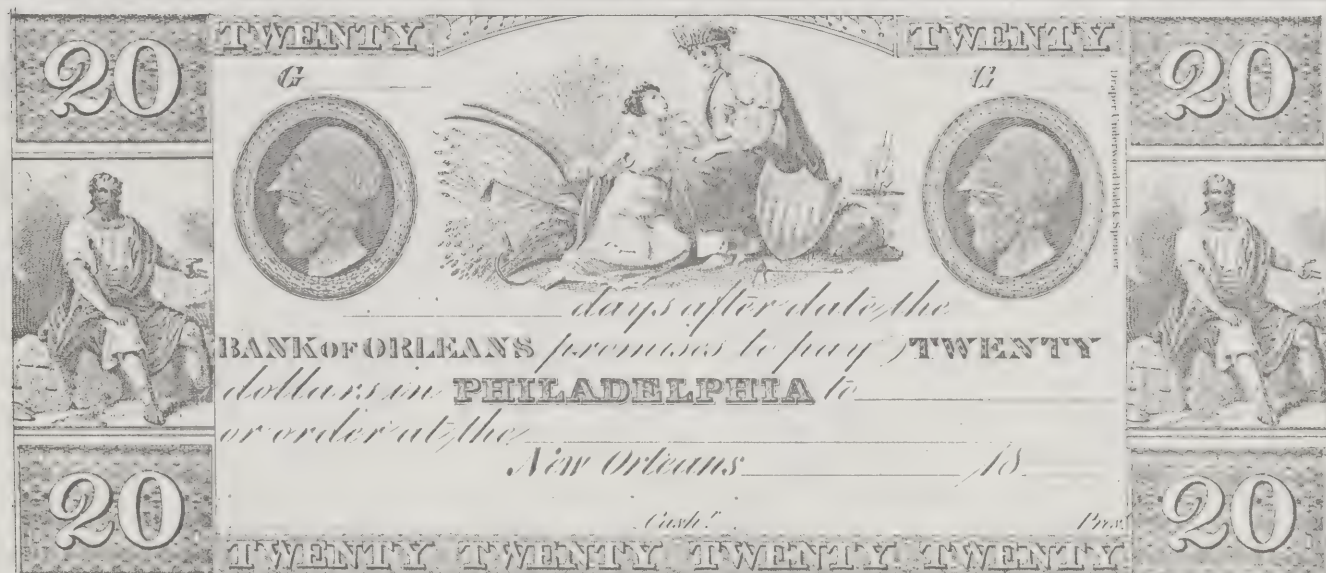 20 TWENTY TWENTY 20
G G
Draper Underwood Bald & Spencer
days after date, the
BANK OF ORLEANS promises to pay TWENTY
dollars in PHILADELPHIA to
or order at the
New Orleans 18
Cashr. Prest.
20 TWENTY TWENTY TWENTY TWENTY 20